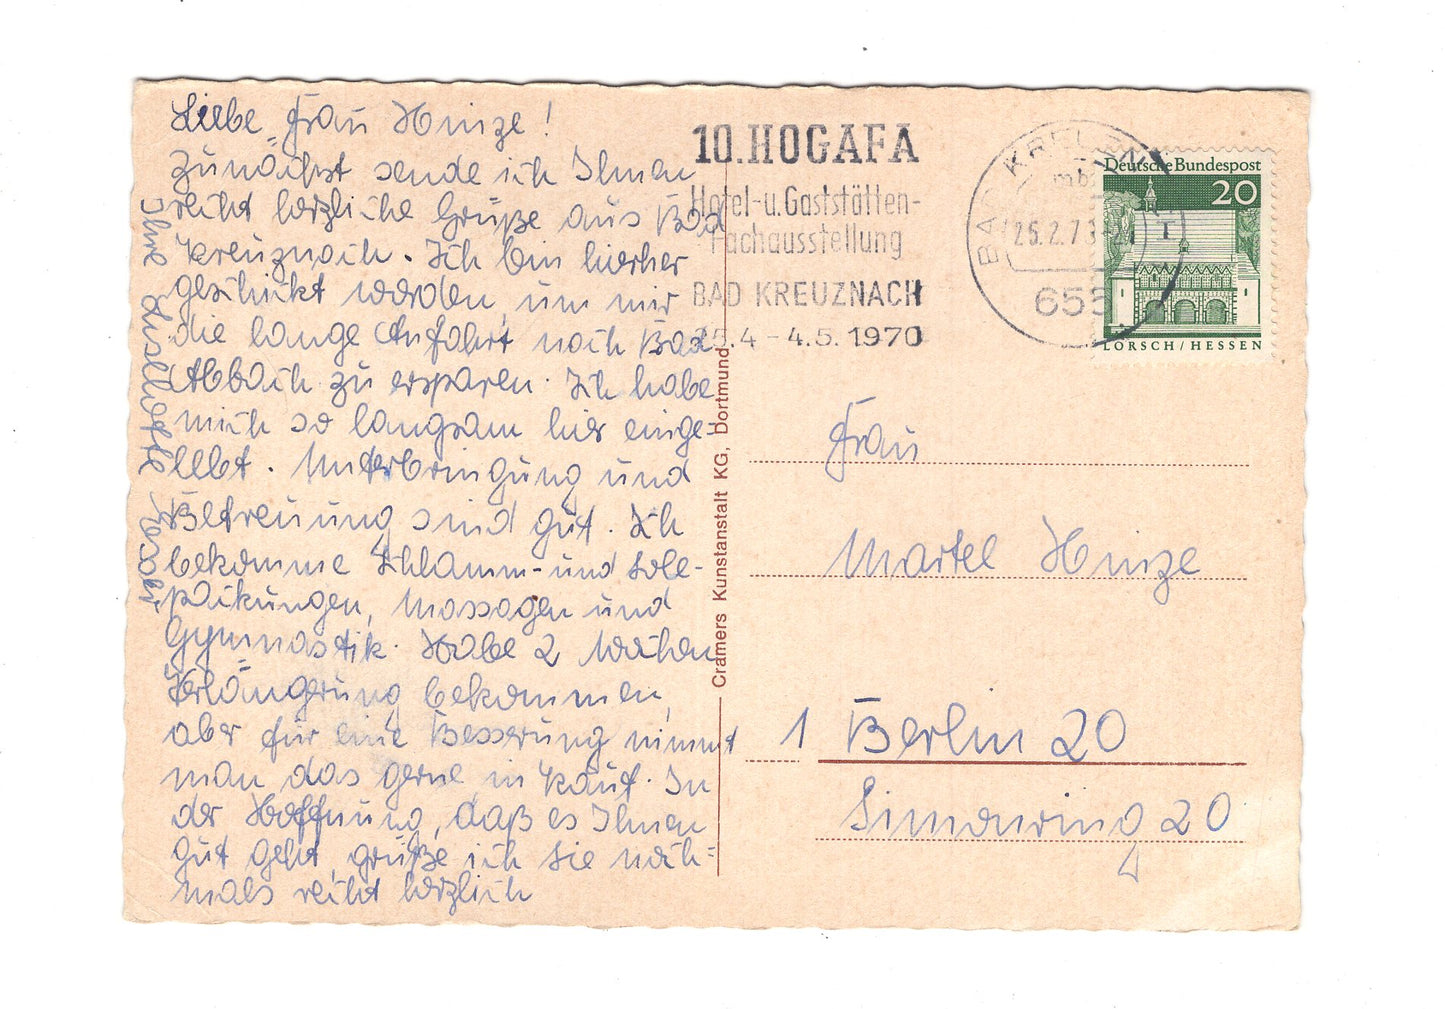 Liebe Frau Hinze!
Zunächst sende ich Ihnen
recht herzliche Grüße aus Bad
Kreuznach. Ich bin hierher
geschickt worden, um mir
die lange Anfahrt nach Bad
Abbach zu ersparen. Ich habe
mich so langsam hier einge-
lebt. Unterbringung und
Betreuung sind gut. Ich
bekomme Schlamm- und Sole-
packungen, Massagen und
Gymnastik. Habe 2 Wochen
Verlängerung bekommen,
aber für eine Besserung nimmt
man das gerne in Kauf. In
der Hoffnung, daß es Ihnen
gut geht, grüße ich Sie noch-
mals recht herzlich
Ihre
Cramers Kunstanstalt KG, Dortmund
10. HOGAFA
Hotel-u. Gaststätten-
Fachausstellung
BAD KREUZNACH
25.4 - 4.5. 1970
BAD KREUZN
25.2.7
655
Deutsche Bundespost
20
LORSCH/HESSEN
Frau
Martel Hinze
1 Berlin 20
20